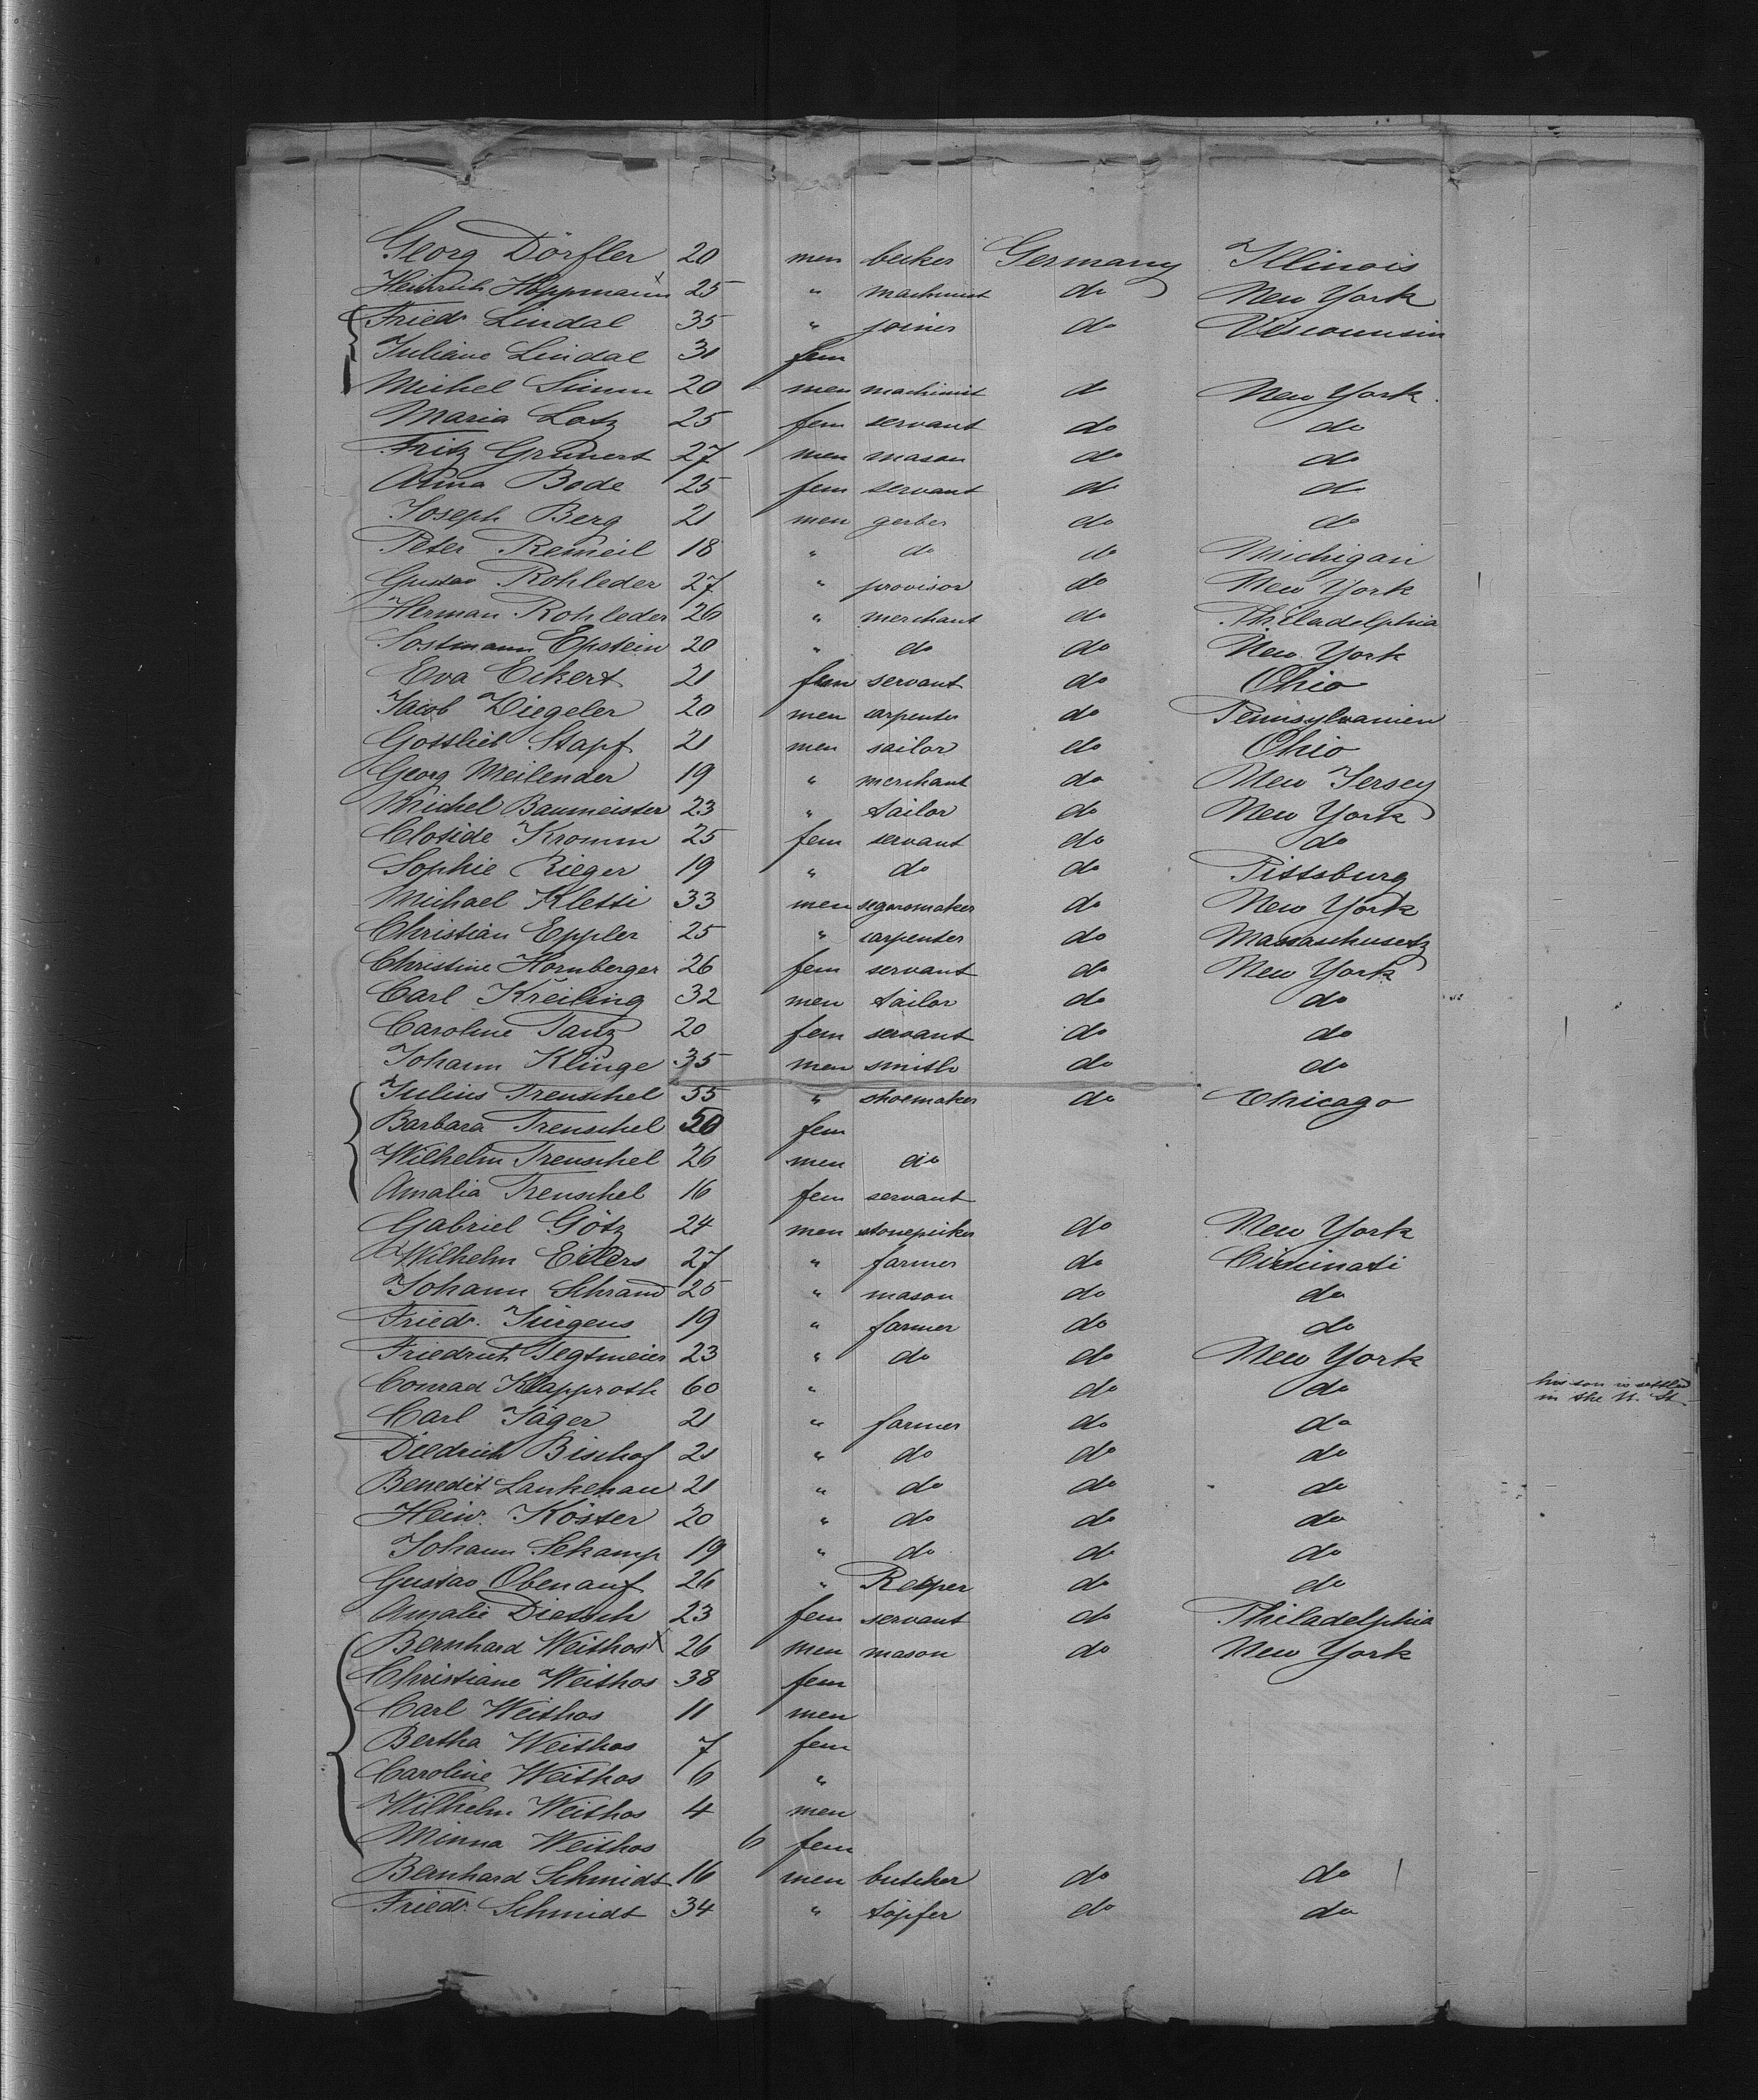 Georg Dörfler 20 men becker Germany Illinois
Heinrich Hoppmann x 25 " machinist do New York
Friedr. Lindal 35 " joiner do Visconnsin
Juliane Lindal 31 fem
Michel Simm 20 men machinist do New York
Maria Lotz 25 fem servant do do
Fritz Grunert 27 men mason do do
Anna Bode 25 fem servant do do
Joseph Berg 21 men gerber do do
Peter Remeil 18 " do do Michigan
Gustav Rohleder 27 " provisor do New York
Herman Rohleder 26 " merchant do Philadelphia
Epstein 20 " do do New York
Eva Eckert 21 fem servant do Ohio
Jacob Ziegeler 20 men carpenter do Pennsylvanien
Gottlieb Stapf 21 men sailor do Ohio
Georg Meilender 19 " merchant do New Jersey
Michel Baumeister 23 " tailor do New York
Clotide Kromm 25 fem servant do do
Sophie Rieger 19 " do do Pittsburg
Michael Kletti 33 men segarsmaker do New York
Christian Eppler 25 " carpenter do Massaschusetz
Christine Hornberger 26 fem servant do New York
Carl Kreiling 32 men tailor do do
Caroline Tanz 20 fem servant do do
Johann Klinge 35 men smith do do
Julius Treuschel 55 " shoemaker do Chicago
Barbara Treuschel 50 fem
Wilhelm Treuschel 26 men do
Amalia Treuschel 16 fem servant
Gabriel Götz 24 men stonepicker do New York
Wilhelm Eilers 27 " farmer do Cicinnati
Johann Schrand 25 " mason do do
Friedr. Jürgens 19 " farmer do do
Friedrich Tegtmeier 23 " do do New York
Conrad Klapproth 60 " do do his son is settled
in the U. St.
Carl Jäger 21 " farmer do do
Diedrich Bischof 21 " do do do
Benedit Lankenau 21 " do do do
Heinr. Köster 20 " do do do
Johann Sekamp 19 " do do do
Gustav Obenauf 26 " do do
Amalie Dietsch 23 fem servant do Philadelphia
Bernhard Weithos x 26 men mason do New York
Christiane Weithos 38 fem
Carl Weithos 11 men
Bertha Weithos 7 fem
Caroline Weithos 6 "
Wilhelm Weithos 4 men
Minna Weithos 6 fem
Bernhard Schmidt 16 men butcher do do
Friedr. Schmidt 34 " töpfer do do